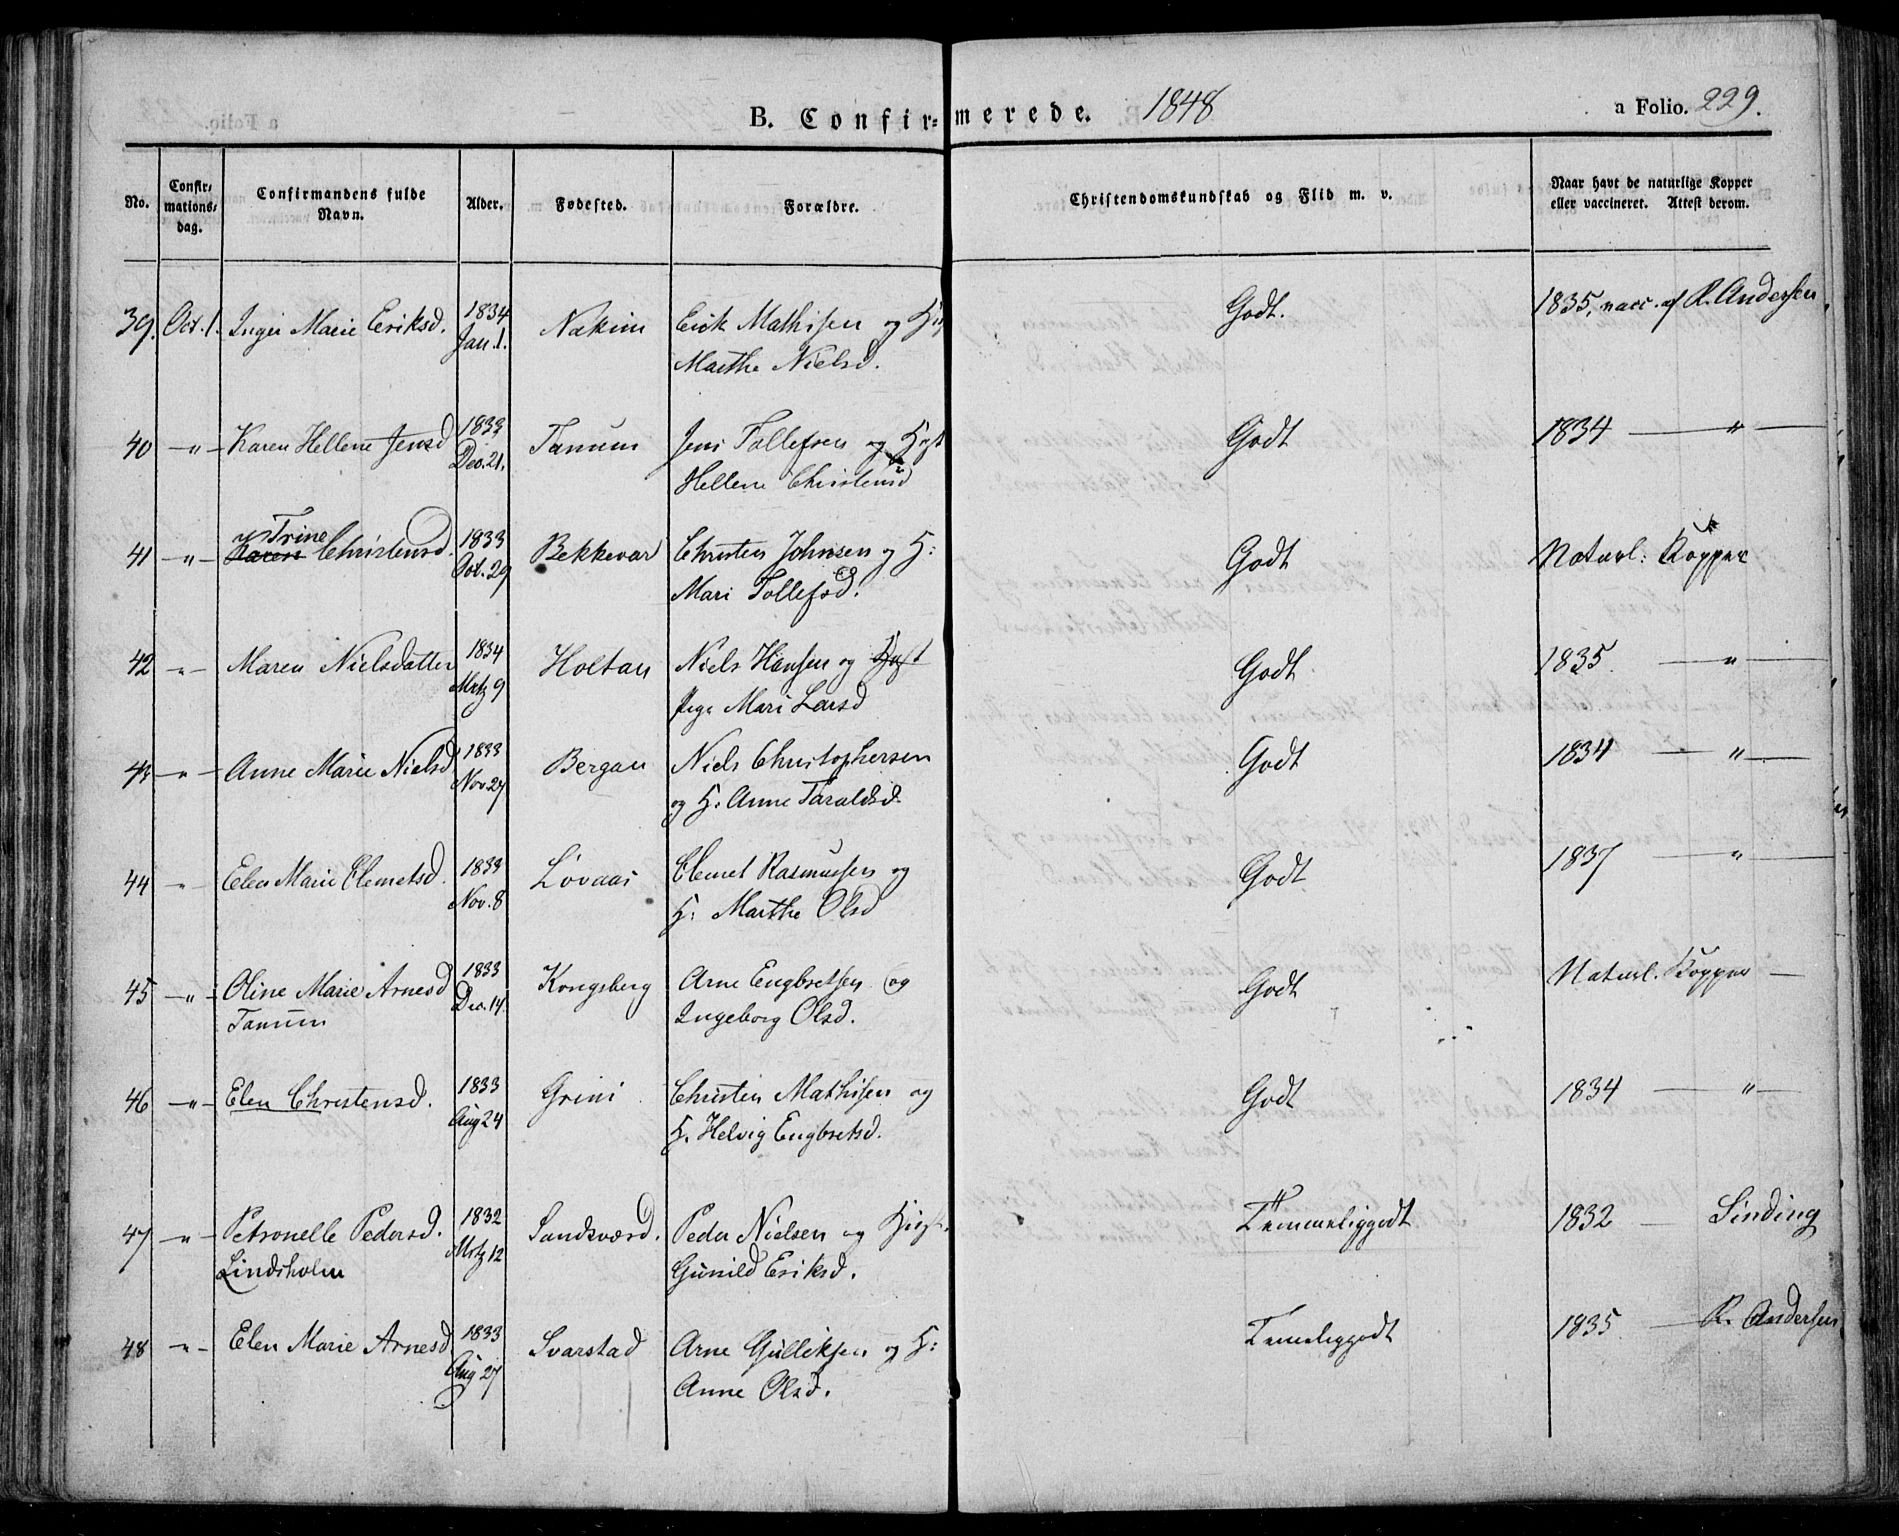 B. Confirmerede. 1848 a Folio. 229.
No. Confirmationsdag. Confirmandens fulde Navn. Alder. Fødested. Forældre. Christendomskundskab og Flid m. v. Naar havt de naturlige Kopper eller vaccineret. Attest derom.
39. Oct. 1. Inger Marie Eriksd. 1834 Nækim Erik Mathisen og Godt. 1835, vacc. af R. Andersen
Jan. 1. Marthe Nielsd.
40 -"- Karen Hellene Jensd 1833 Tanum Jens Tollefsen og Kgst Godt 1834 — " —
Dec. 21. Hellene Christensd
Trine
41 -"- Karen Christensd. 1833 Bekkevar Christen Johnsen og K: Godt Naturl: Kopper
Oct. 29 Mari Tollefsd.
42 -"- Maren Nielsdatter 1834 Holtan Niels Hansen og Kgst Godt 1835 — " —
Mrtz 9 Pige Mari Larsd
43 -"- Anne Marie Nielsd 1833 Bergan Niels Christophersen Godt 1834 — " —
Nov 27 og K. Anne Taraldsd.
44 -"- Elen Marie Clemetsd. 1833 Løvaas Clemet Rasmussen og Godt 1837 — " —
Nov. 8 K: Marthe Olsd
45 -"- Oline Marie Arnesd 1833 Kongsberg Arne Engbretsen og Godt Naturl. Kopper —
Tanum Dec. 14. Ingeborg Olsd.
46 -"- Elen Christensd. 1833 Grini Christen Mathisen og Godt 1834 — " —
Aug 24 K. Helvig Engbretsd.
47 -"- Petronelle Pedersd. 1832 Sandsværd. Peder Nielsen og Temmeliggodt 1832 — Sinding
Lindsholm Mrtz 12 Gunild Eriksd.
48 -"- Elen Marie Arnesd 1833 Svarstad Arne Gulliksen og K: Temeliggodt 1835 — R. Andersen
Aug 27 Anne Olsd.